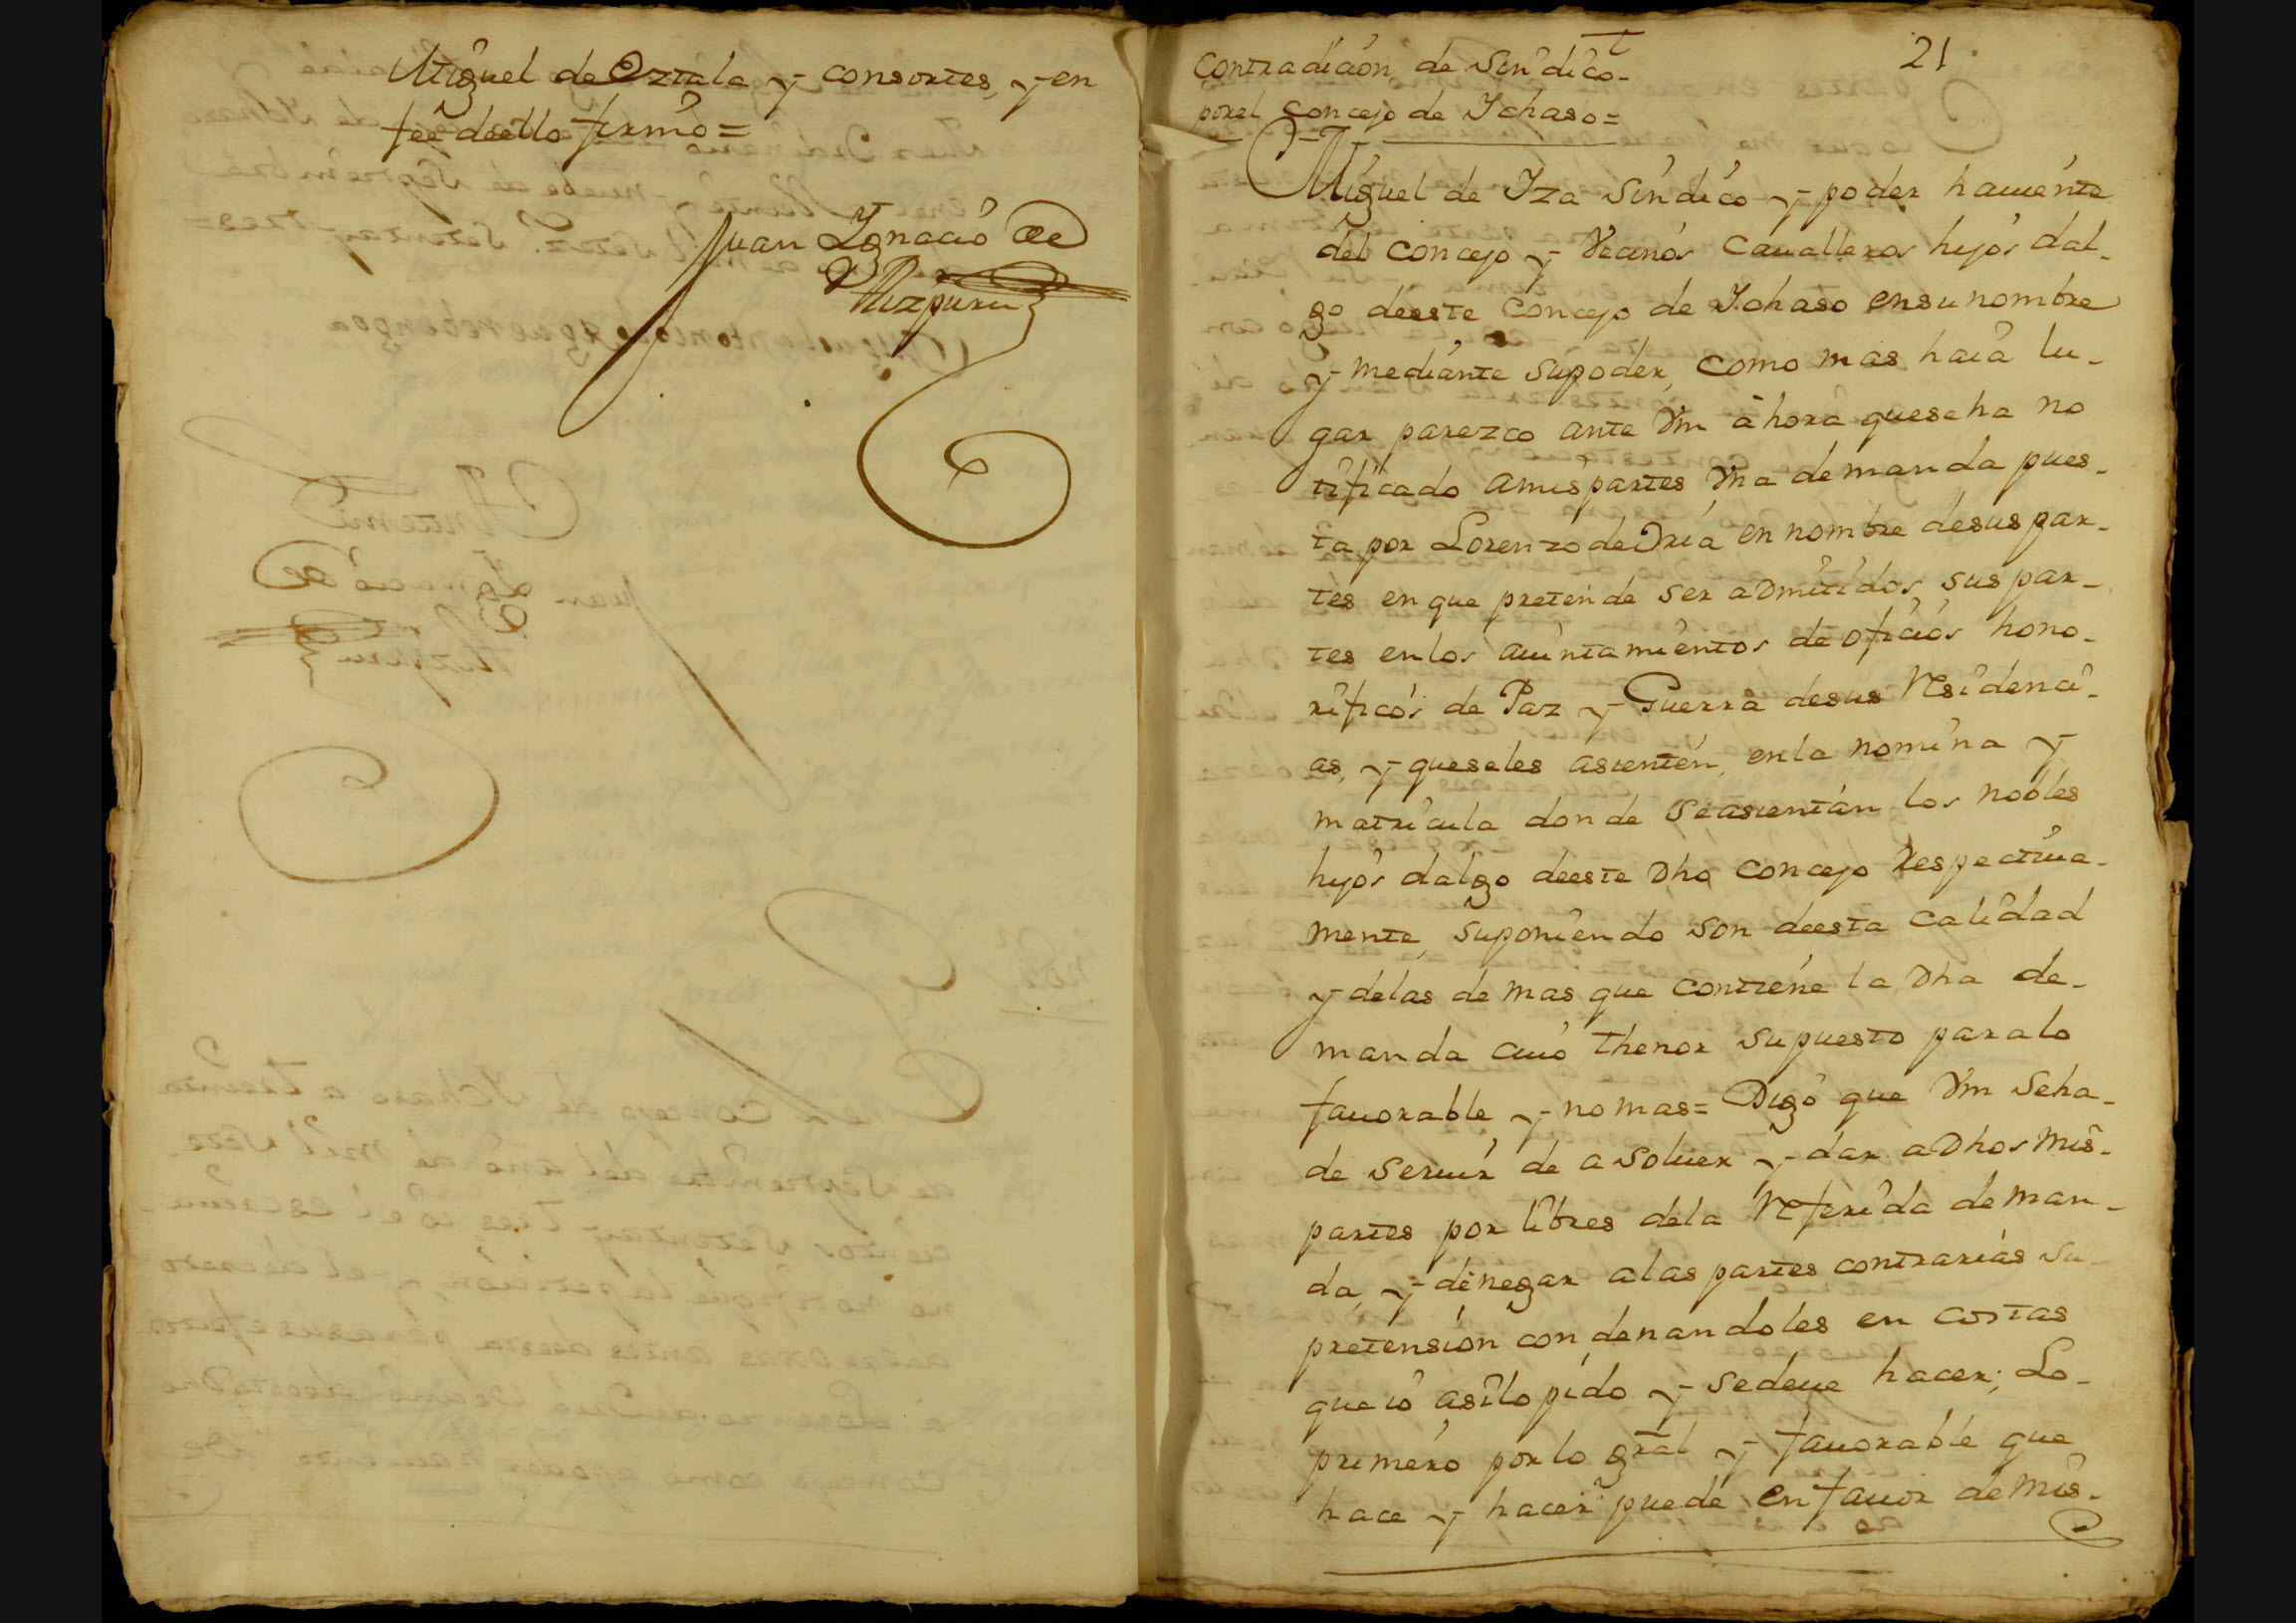 Miguel de Oztala y consortes, y en
fee deello firmó =
Juan Ignacio de
Aizpuru
21
Contradición de Sindico
porel Concejo de Ichaso =
Miguel de Iza Sindico y poder hauiente
del Concejo y Vecinos Caualleros hijos dal-
go deeste Concejo de Ichaso ensu nombre
y mediante supoder, como mas haia lu-
gar parezco ante Vm àhora quese ha no
tificado amispartes Vna demanda pues-
ta por Lorenzo de Oria en nombre desus par-
tes en que pretende ser aDmitidos sus par-
tes enlos aiuntamientos de oficios hono-
rificos de Paz y Guerra desus Residenci-
as, y queseles asienten, enla nomina y
matricula donde Seasientan los nobles
hijos dalgo deeste Dho Concejo Respectiua-
mente, suponiendo son deesta Calidad
y delas de mas que contiene la Dha de-
manda cuio thenor supuesto paralo
fauorable y no mas = Digo que Vm Seha-
de seruir de asoluer y dar aDhos mis-
partes por libres dela Referida deman-
da, y denegar alas partes contrarias su
pretension condenandoles en costas
que io asilo pido y sedeue hacer; Lo-
primero porlo gral y fauorable que
hace y hacer puede en fauor de mis-